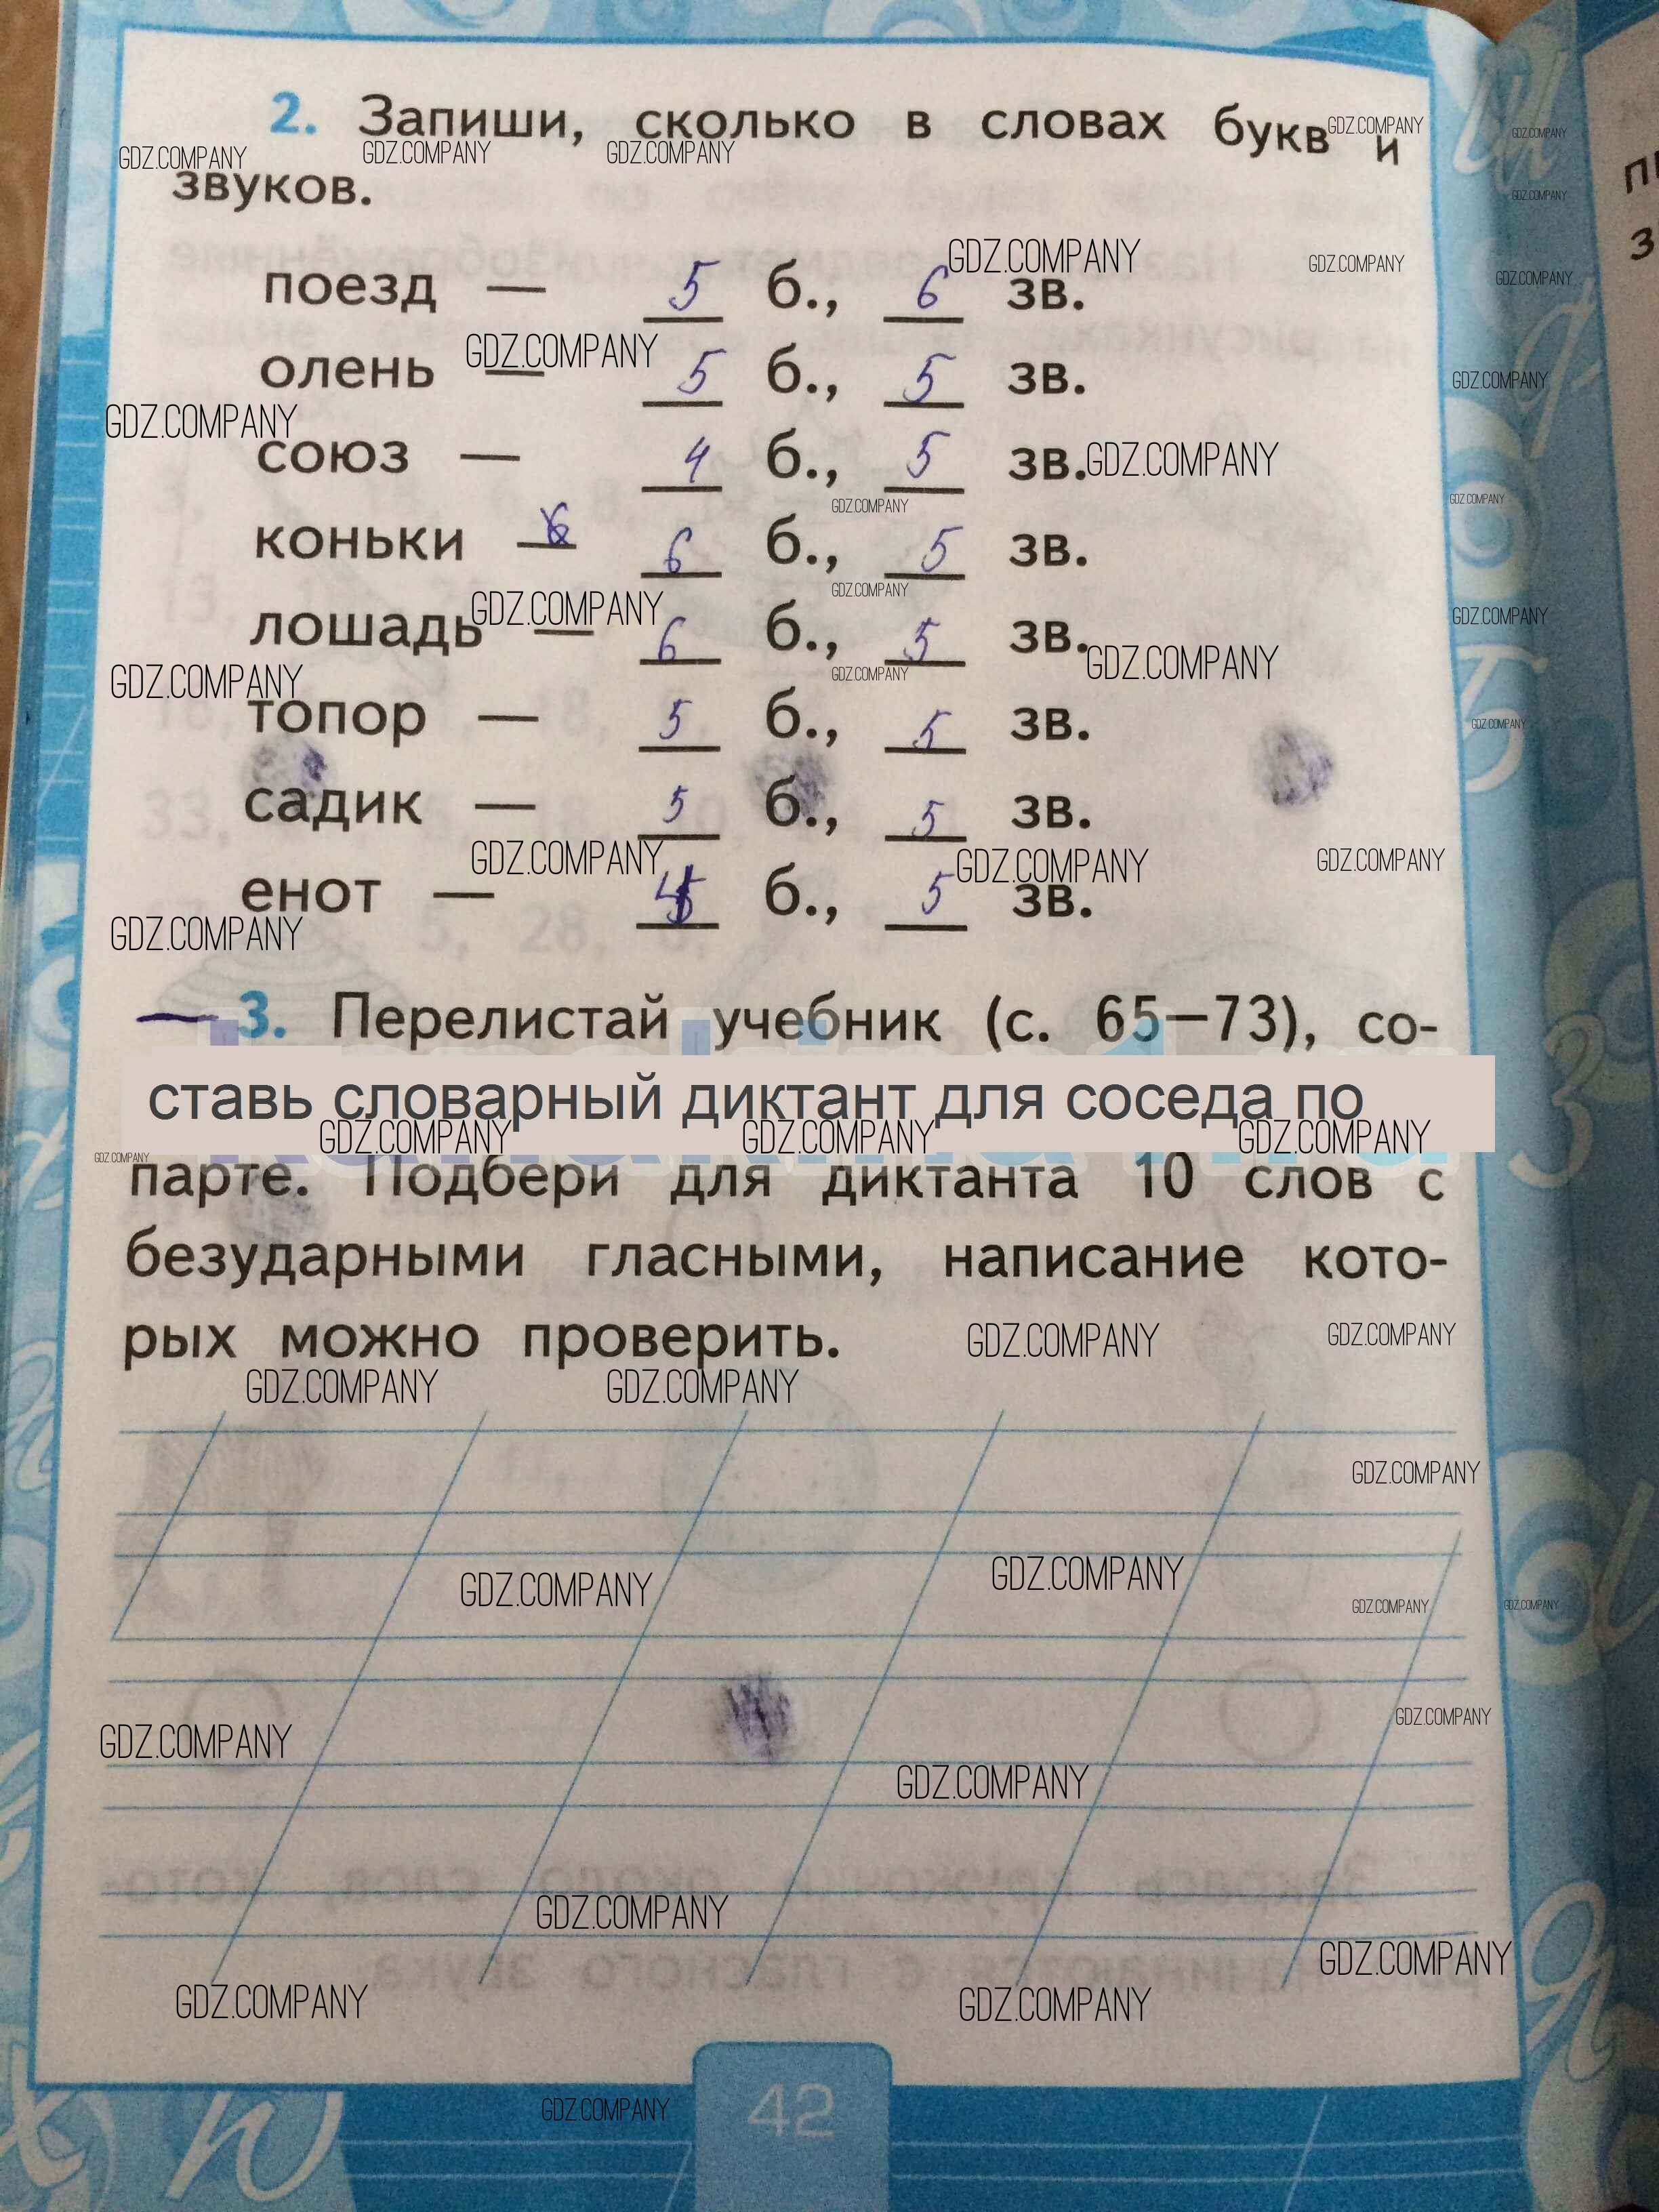 2. Запиши, сколько в словах букв и
звуков.
поезд — 5 б., 6 зв.
олень — 5 б., 5 зв.
союз — 4 б., 5 зв.
коньки — 6 б., 5 зв.
лошадь — 6 б., 5 зв.
топор — 5 б., 5 зв.
садик — 5 б., 5 зв.
енот — 4 б., 5 зв.
3. Перелистай учебник (с. 65—73), со-
ставь словарный диктант для соседа по
парте. Подбери для диктанта 10 слов с
безударными гласными, написание кото-
рых можно проверить.
GDZ.COMPANY
42